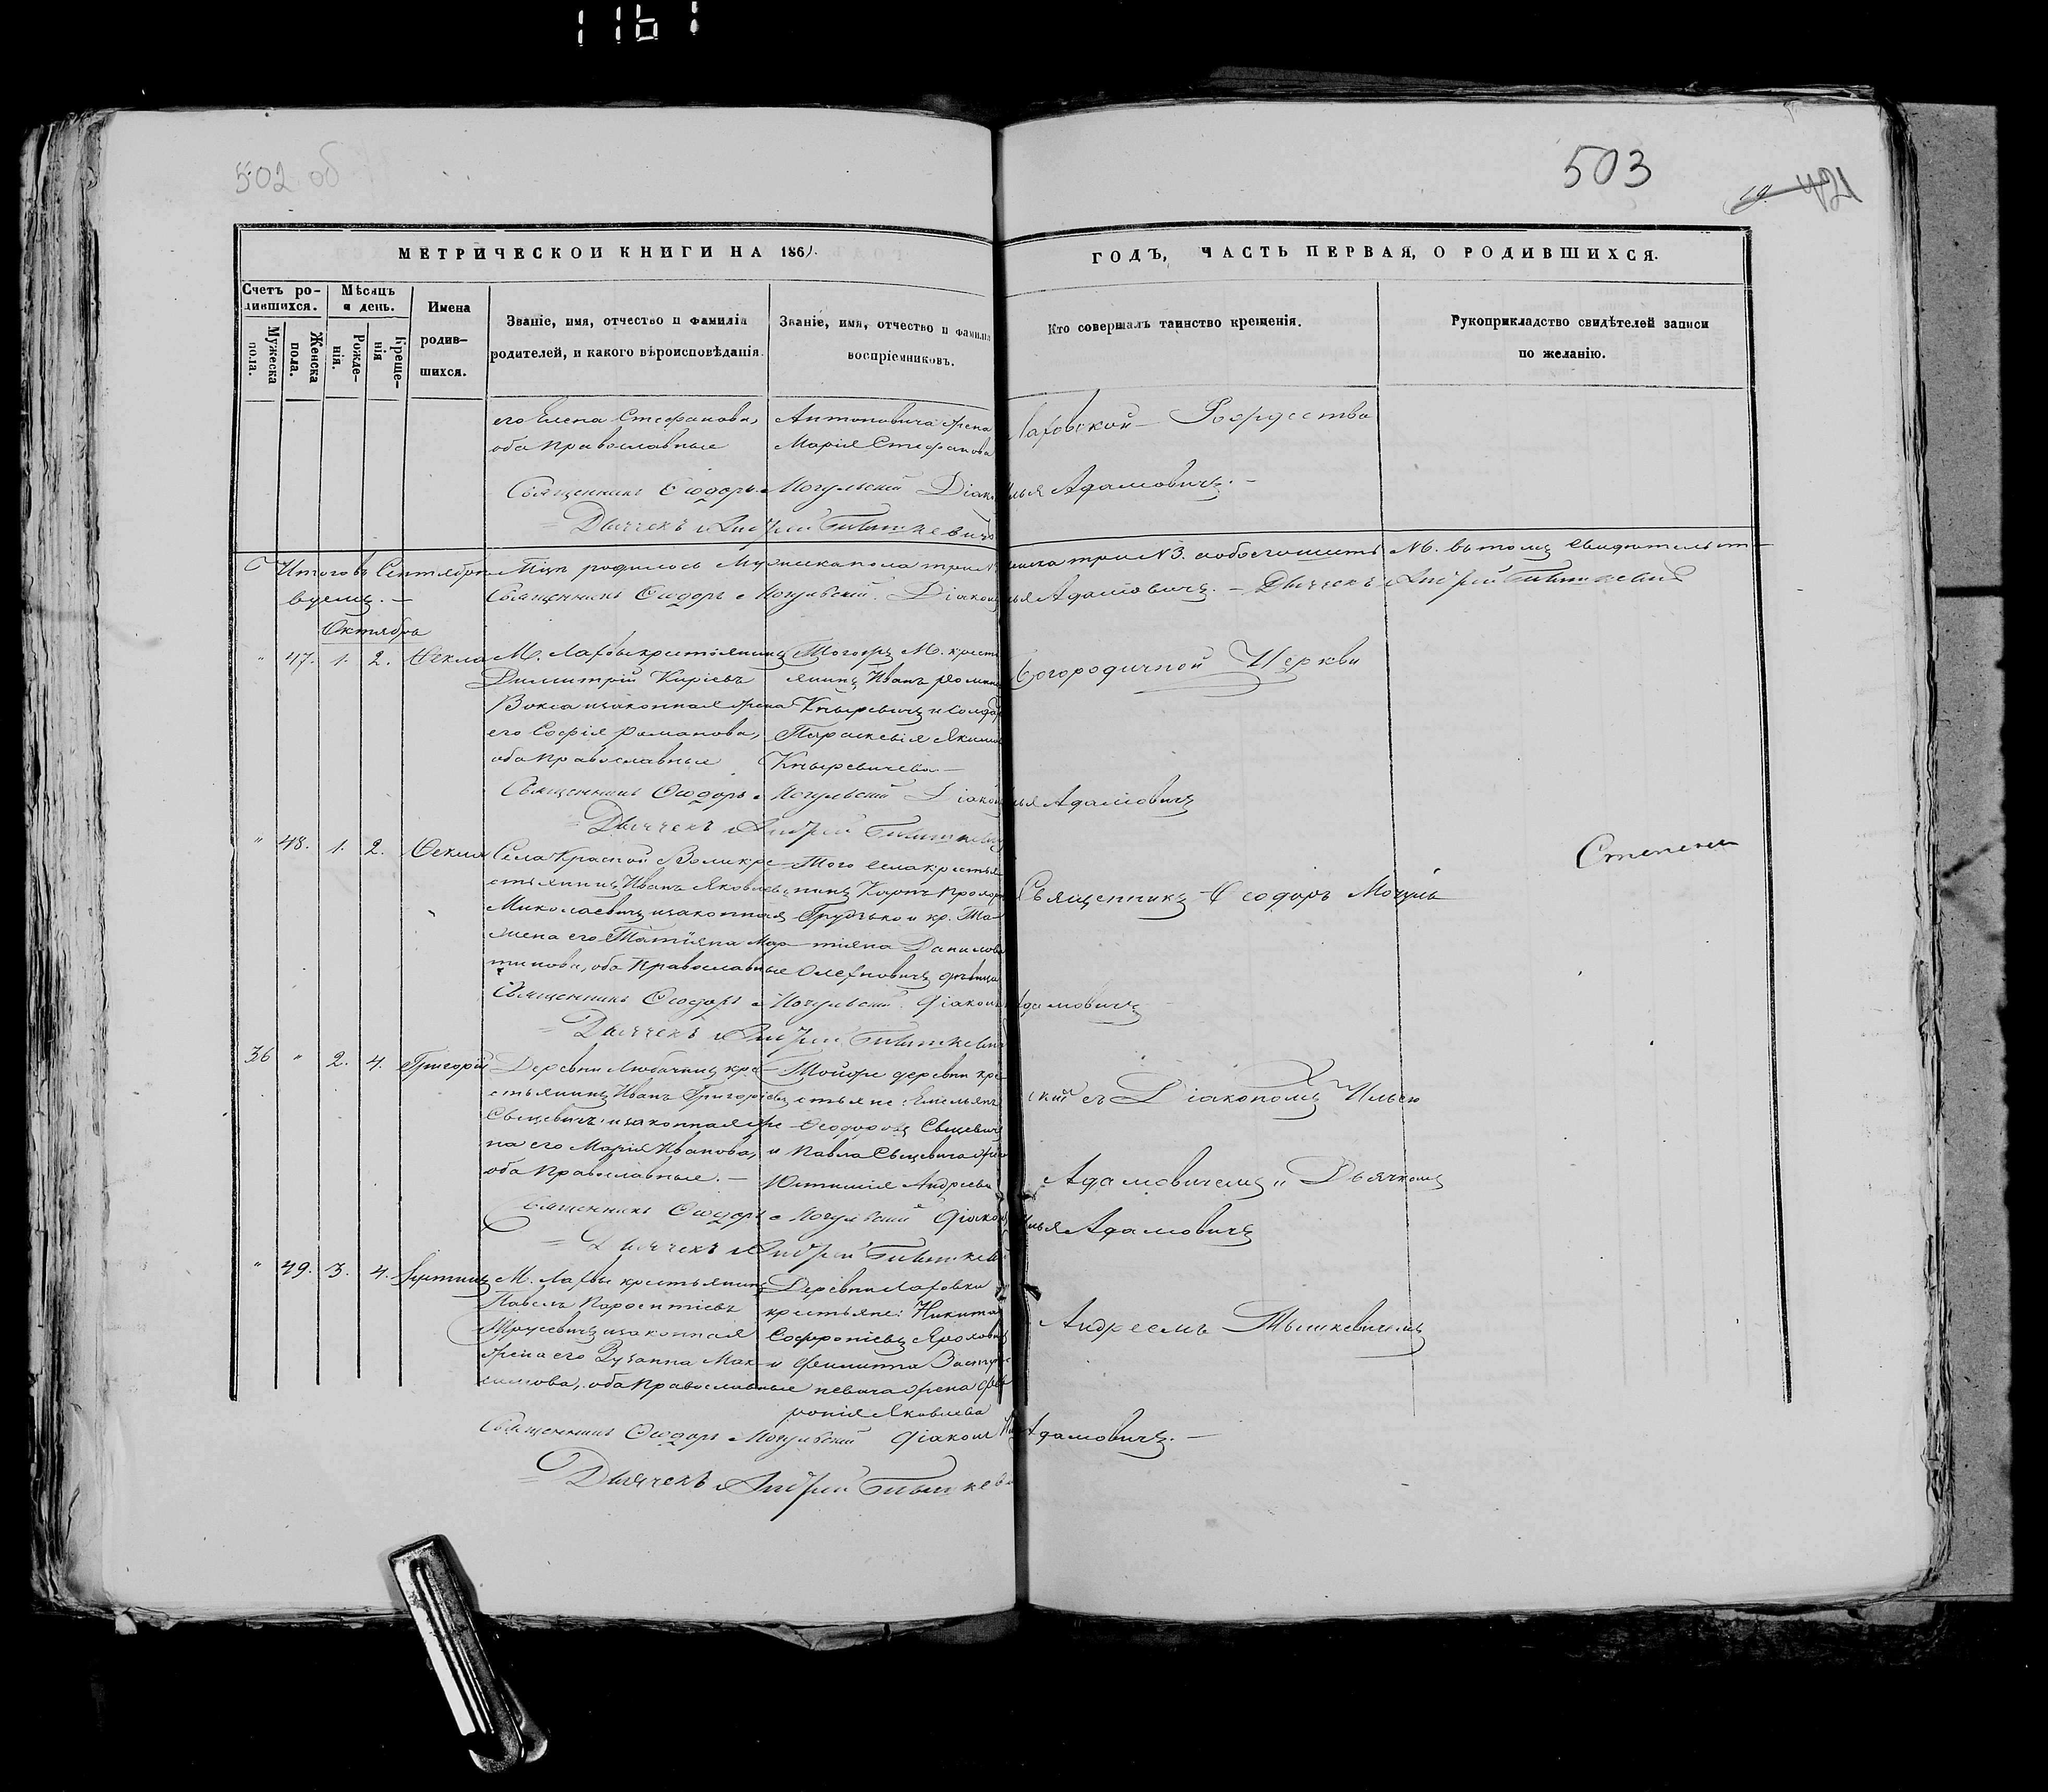 1161
502 об
503
421
МЕТРИЧЕСКОЙ КНИГИ НА 1861.
ГОДЪ, ЧАСТЬ ПЕРВАЯ, О РОДИВШИХСЯ.
Счетъ ро-
дившихся.
Мужеска пола.
Женска пола.
Мѣсяцъ
и день.
Рожде-
нія.
Креще-
нія
Имена
родив-
шихся.
Званіе, имя, отчество и фамилія
родителей, и какого вѣроисповѣданія.
Званіе, имя, отчество и фамилія
воспріемниковъ.
Кто совершалъ таинство крещенія.
Рукоприкладство свидѣтелей записи
по желанію.
его Елена Стефанова,
оба православные
Антоновича жена
Марія Стефанова
Лаховской Рождество
Священникъ Ѳеодоръ Могульскій Діаконъ Илья Адамовичъ.
Дьячекъ Андрей Тышкевичъ
Итого въ Сентябрѣ М-цѣ родилось мужеска пола три №3. женска три №3. а обоего шесть №6. въ томъ свидѣтельст-
вуемъ.
Священникъ Ѳеодоръ Могульскій. Діаконъ Илья Адамовичъ. Дьячекъ Андрей Тышкевичъ
Октябрь
" 47. 1. 2. Ѳекла
М. Лахвы крестьянинъ
Димитрій
его Софія Романова,
оба православные
Тогожъ М. крест
янинъ Иванъ Романо
Параскевія Якимо
Богородичной Церкви
Священникъ Ѳеодоръ Могульскій Діаконъ Илья Адамовичъ
Дьячекъ Андрей Тышкевичъ
" 48. 1. 2. Ѳекла
Села Красной Воли кре-
стьянинъ Иванъ Яковлевъ
Миколаевичъ и законная
жена его Татіяна Мар-
тинова, оба Православные
Того села крестья
нинъ Карпъ Прохор
Грудько и кр. Та-
тіяна Данилова
дѣвица
Священникъ Ѳеодоръ Могуль
Степени
Священникъ Ѳеодоръ Могульскій. Діаконъ Адамовичъ
Дьячекъ Андрей Тышкевичъ
36 " 2. 4. Григорій
Деревни Любачинъ кре-
стьянинъ Иванъ Григорьевъ
Свцевичъ и законная же-
на его Марія Иванова,
оба Православные.
Тойже деревни кре-
стьяне: Емельянъ
Ѳеодоровъ Свцевичъ
и Павла Свцевича жена
Юстинія Андреева
скій съ Діакономъ Ильею
Адамовичемъ и Дьячкомъ
Священникъ Ѳеодоръ Могульскій Діаконъ Илья Адамовичъ
Дьячекъ Андрей Тышкевичъ
" 49. 3. 4.
М. Лахвы крестьянинъ
Павелъ
и законная
жена его Зузанна Мак-
симова, оба Православные
Деревни Лаховки
крестьяне: Никита
Софроніевъ
и Филиппа
жена Фев
ронія Яковлева
Андреемъ Тышкевичемъ
Священникъ Ѳеодоръ Могульскій Діаконъ Илья Адамовичъ.
Дьячекъ Андрей Тышкевичъ